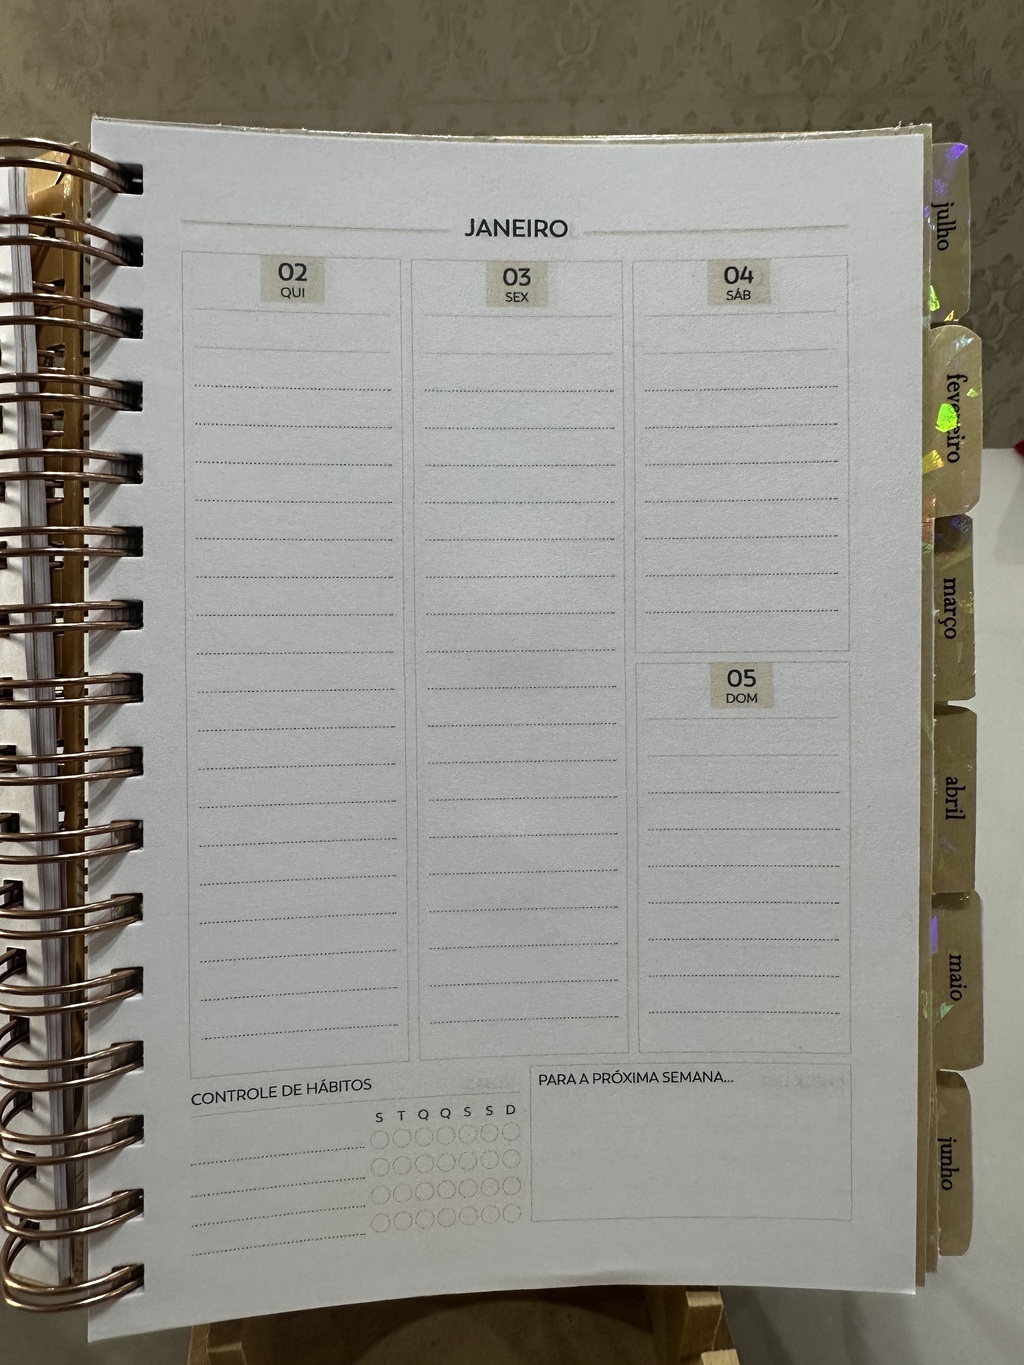 JANEIRO
02
QUI
03
SEX
04
SÁB
05
DOM
CONTROLE DE HÁBITOS
S T Q Q S S D
PARA A PRÓXIMA SEMANA...
julho
fevereiro
março
abril
maio
junho